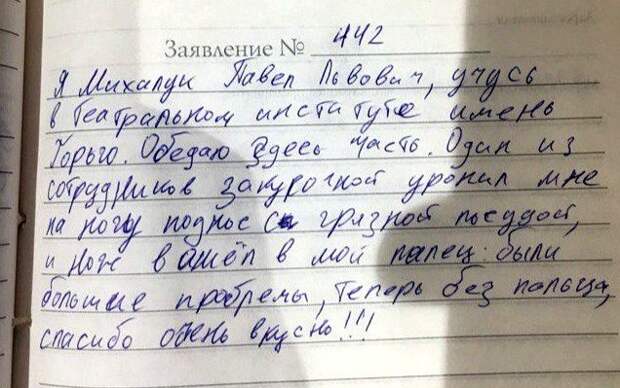 Заявление № 442
Я Михалук Павел Львович, учусь
в Театральном институте имень
Горьго. Обедаю здесь часть. Один из
сотрудников закурочной уронил мне
на ногу поднос с грязной посудой,
и нож вошёл в мой палец. были
большие проблемы, теперь без пальца,
спасибо очень вкусно!!!